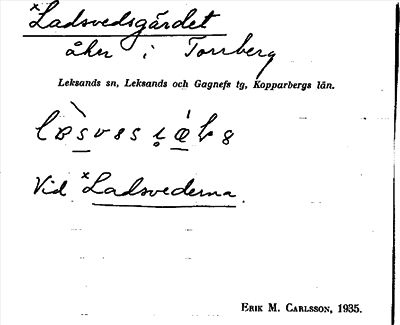 ×Ladsvedsgärdet
åker i Torrberg
Leksands sn, Leksands och Gagnefs tg, Kopparbergs län.
Vid ×Ladsvederna
ERIK M. CARLSSON, 1935.